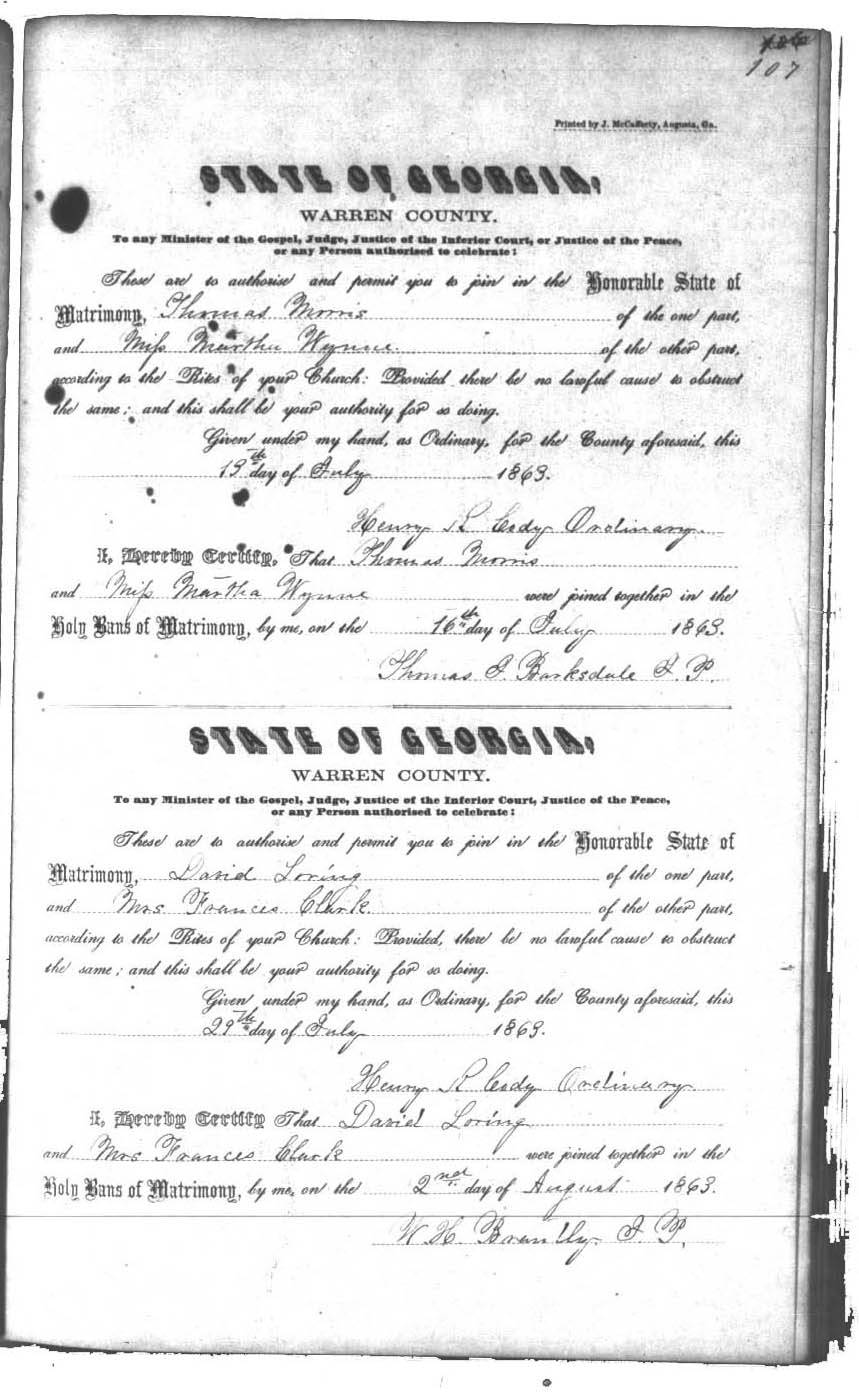 107
Printed by J. McCafferty, Augusta, Ga.
STATE OF GEORGIA,
WARREN COUNTY.
To any Minister of the Gospel, Judge, Justice of the Inferior Court, or Justice of the Peace,
or any Person authorised to celebrate:
These are to authorise and permit you to join in the Honorable State of
Matrimony, Thomas Morris of the one part,
and Miss Martha Wynne of the other part,
according to the Rites of your Church: Provided there be no lawful cause to obstruct
the same; and this shall be your authority for so doing.
Given under my hand, as Ordinary, for the County aforesaid, this
15th day of July 1863.
Henry R Cody Ordinary
I, Hereby Certify, That Thomas Morris
and Miss Martha Wynne were joined together in the
Holy Bans of Matrimony, by me, on the 16th day of July 1863.
Thomas J. Barksdale J. P.
STATE OF GEORGIA,
WARREN COUNTY.
To any Minister of the Gospel, Judge, Justice of the Inferior Court, Justice of the Peace,
or any Person authorised to celebrate:
These are to authorise and permit you to join in the Honorable State of
Matrimony, David Loring of the one part,
and Mrs Frances Clark of the other part,
according to the Rites of your Church: Provided, there be no lawful cause to obstruct
the same; and this shall be your authority for so doing.
Given under my hand, as Ordinary, for the County aforesaid, this
29th day of July 1863.
Henry R Cody Ordinary
I, Hereby Certify That David Loring
and Mrs Frances Clark were joined together in the
Holy Bans of Matrimony, by me, on the 2nd day of August 1863.
W. H. Brantly J. P.